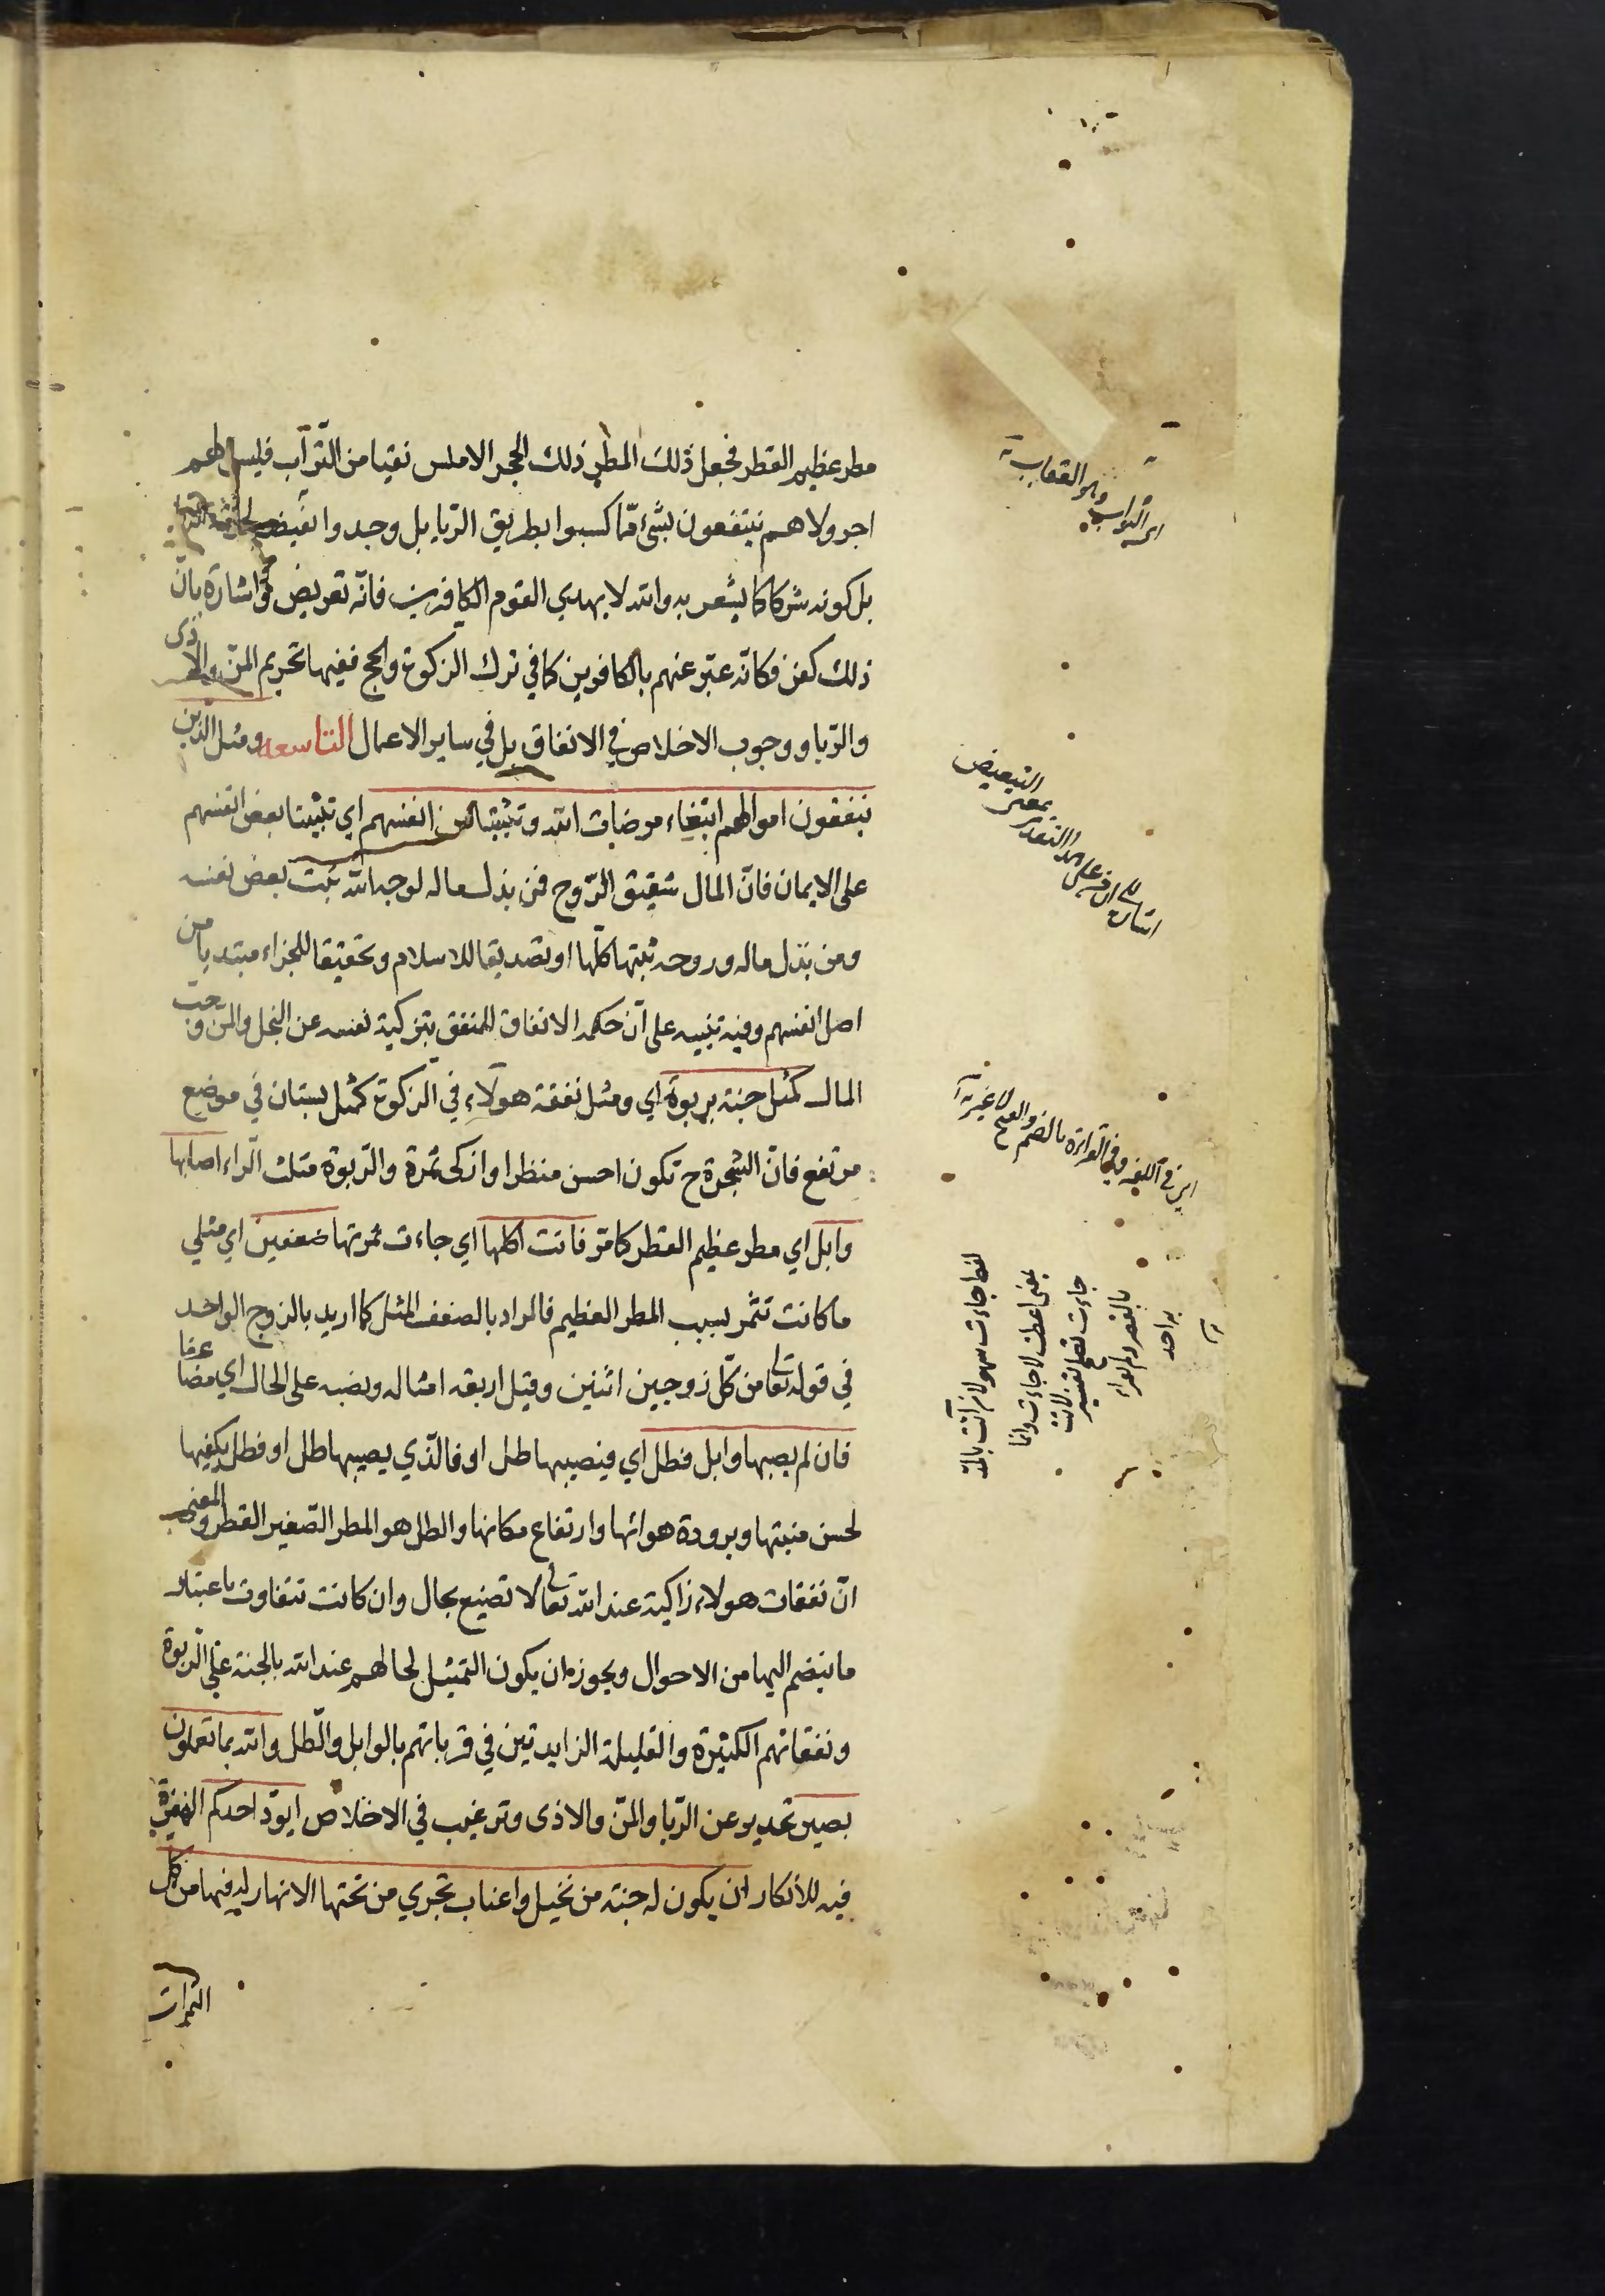 مطر عظيم القطر فجعل ذلك المطر ذلك الحجر الاملس نقيا من التراب فليس لهم
اجر ولا هم ينتفعون بشئ مما كسبوا بطريق الريا بل وجدوا نقيض
بل كونه شركا كما يشعر به والله لا يهدي القوم الكافرين فانه تعريض واشارة بان
ذلك كفر فكانه عبر عنهم بالكافرين كما في ترك الزكوة والحج ففيها تحريم المن والاذى
والريا ووجوب الاخلاص في الانفاق بل في ساير الاعمال التاسعه ومثل الذين
ينفقون اموالهم ابتغاء مرضات الله وتثبيتا من انفسهم اي تثبيتا بعض انفسهم
على الايمان فان المال شقيق الروح فمن بذل ماله لوجه الله ثبت بعض نفسه
ومن بذل ماله وروحه ثبتها كلها او تصديقا للاسلام وتحقيقا للجزاء مبتديا من
اصل انفسهم وفيه تنبيه على ان حكمه الانفاق للمنفق بتزكية نفسه عن البخل والمن وحب
المال كمثل جنة بربوة اي ومثل نفقة هولاء في الزكوة كمثل بستان في موضع
مرتفع فان الشجرة ح تكون احسن منظرا وازكى ثمرة والربوة مثلث الراء اصابها
وابل اي مطر عظيم القطر كما مر فاتت اكلها اي جاءت ثمرتها ضعفين اي مثلي
ما كانت تثمر بسبب المطر العظيم فالمراد بالضعف المثل كما اريد بالزوج الواحد
في قوله تعالى من كل زوجين اثنين وقيل اربعه امثاله ونصبه على الحال اي مضاعفا
فان لم يصبها وابل فطل اي فيصيبها طل او فالذي يصيبها طل او فطل يكفيها
لحسن منبتها وبرودة هوائها وارتفاع مكانها والطل هو المطر الصغير القطر والمعنى
ان نفقات هولاء زاكية عند الله تعالى لا تضيع بحال وان كانت تتفاوت باعتبار
ما ينضم اليها من الاحوال ويجوز ان يكون التمثيل لحالهم عند الله بالجنة على الربوة
ونفقاتهم الكثيرة والقليلة الزايدتين في قرباتهم بالوابل والطل والله بما تعملون
بصير تحدير عن الريا والمن والاذى وترغيب في الاخلاص ايود احدكم الهمزة
فيه للانكار ان يكون له جنة من نخيل واعناب تجري من تحتها الانهار له فيها من كل
الثمرات
اي الثواب وهو العقاب
التبعيض
بمعنى
على هذا التقدير
اي في اللغة وفي القراءة بالضم والفتح لا غير
لفظ جاءت سهو لان آتت بالمد
بمعنى اعطت لا جاءت وانما
جاءت تصلح لتفسير لاتت
بالقصر ولم يقراء
به احد